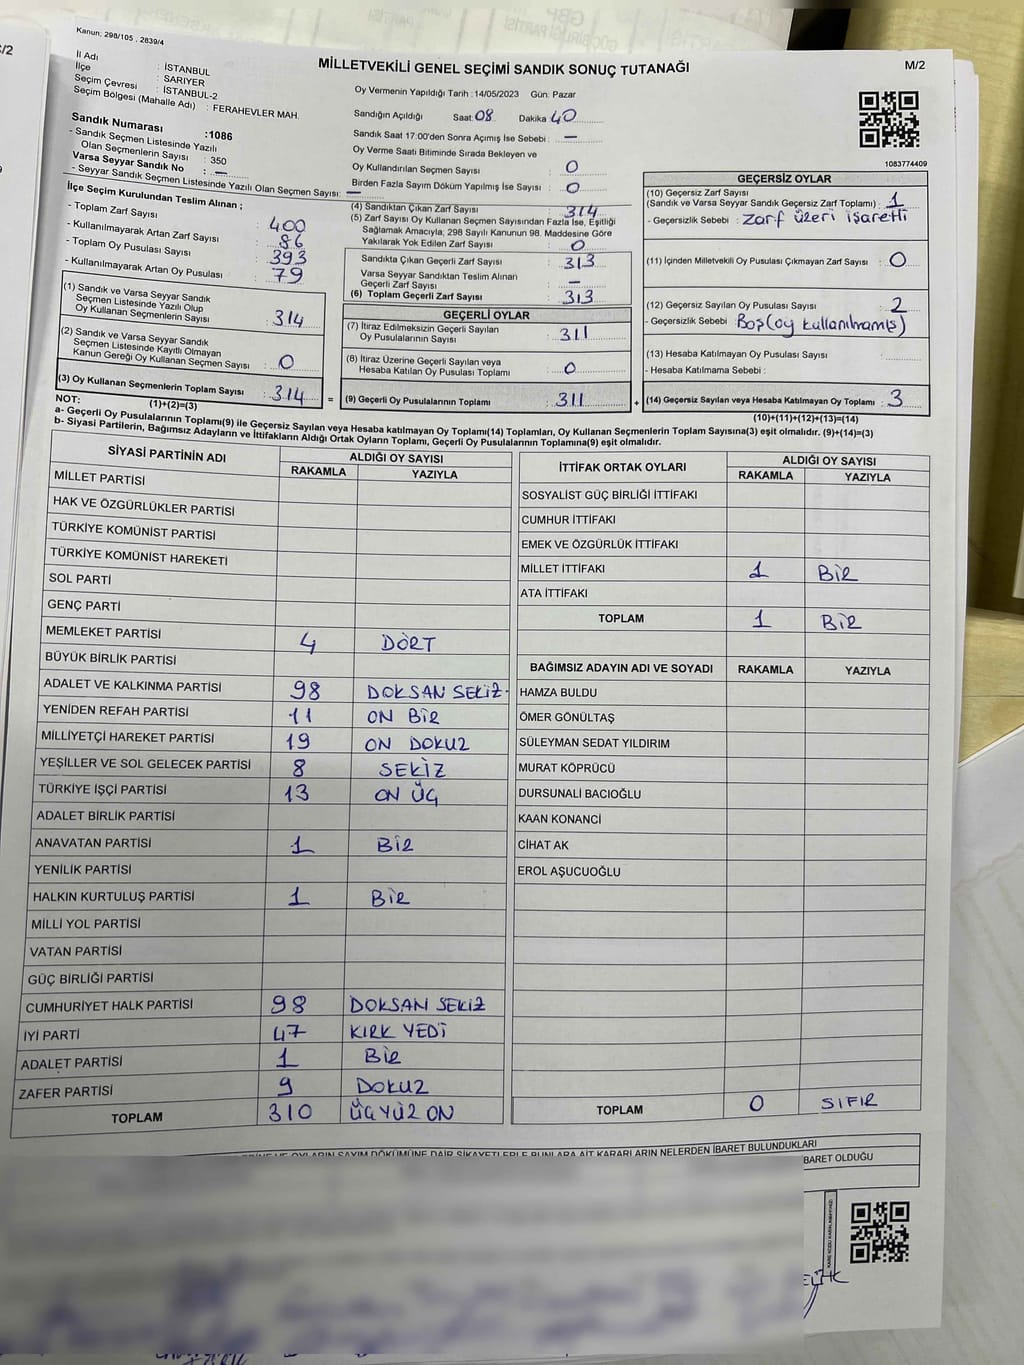 Kanun; 298/105 , 2839/4
MİLLETVEKİLİ GENEL SEÇİMİ SANDIK SONUÇ TUTANAĞI
M/2
İl Adı : İSTANBUL
İlçe : SARIYER
Seçim Çevresi : İSTANBUL-2
Seçim Bölgesi (Mahalle Adı) : FERAHEVLER MAH.
Sandık Numarası :1086
- Sandık Seçmen Listesinde Yazılı
Olan Seçmenlerin Sayısı : 350
Varsa Seyyar Sandık No : —
- Seyyar Sandık Seçmen Listesinde Yazılı Olan Seçmen Sayısı: —
Oy Vermenin Yapıldığı Tarih :14/05/2023 Gün: Pazar
Sandığın Açıldığı Saat: 08 Dakika 40
Sandık Saat 17:00'den Sonra Açımış İse Sebebi : —
Oy Verme Saati Bitiminde Sırada Bekleyen ve
Oy Kullandırılan Seçmen Sayısı : 0
Birden Fazla Sayım Döküm Yapılmış İse Sayısı : 0
1083774409
İlçe Seçim Kurulundan Teslim Alınan ;
- Toplam Zarf Sayısı : 400
- Kullanılmayarak Artan Zarf Sayısı : 86
- Toplam Oy Pusulası Sayısı : 393
- Kullanılmayarak Artan Oy Pusulası : 79
(1) Sandık ve Varsa Seyyar Sandık
Seçmen Listesinde Yazılı Olup
Oy Kullanan Seçmenlerin Sayısı : 314
(2) Sandık ve Varsa Seyyar Sandık
Seçmen Listesinde Kayıtlı Olmayan
Kanun Gereği Oy Kullanan Seçmen Sayısı : 0
(3) Oy Kullanan Seçmenlerin Toplam Sayısı : 314 =
(4) Sandıktan Çıkan Zarf Sayısı : 314
(5) Zarf Sayısı Oy Kullanan Seçmen Sayısından Fazla İse, Eşitliği
Sağlamak Amacıyla; 298 Sayılı Kanunun 98. Maddesine Göre
Yakılarak Yok Edilen Zarf Sayısı : 0
Sandıkta Çıkan Geçerli Zarf Sayısı : 313
Varsa Seyyar Sandıktan Teslim Alınan
Geçerli Zarf Sayısı : —
(6) Toplam Geçerli Zarf Sayısı : 313
GEÇERLİ OYLAR
(7) İtiraz Edilmeksizin Geçerli Sayılan
Oy Pusulalarının Sayısı : 311
(8) İtiraz Üzerine Geçerli Sayılan veya
Hesaba Katılan Oy Pusulası Toplamı : 0
(9) Geçerli Oy Pusulalarının Toplamı : 311 +
GEÇERSİZ OYLAR
(10) Geçersiz Zarf Sayısı
(Sandık ve Varsa Seyyar Sandık Geçersiz Zarf Toplamı) : 1
- Geçersizlik Sebebi : Zarf üzeri işaretli
(11) İçinden Milletvekili Oy Pusulası Çıkmayan Zarf Sayısı : 0
(12) Geçersiz Sayılan Oy Pusulası Sayısı : 2
- Geçersizlik Sebebi Boş(oy kullanılmamış)
(13) Hesaba Katılmayan Oy Pusulası Sayısı :
- Hesaba Katılmama Sebebi :
(14) Geçersiz Sayılan veya Hesaba Katılmayan Oy Toplamı : 3
NOT: (1)+(2)=(3)
(10)+(11)+(12)+(13)=(14)
a- Geçerli Oy Pusulalarının Toplamı(9) ile Geçersiz Sayılan veya Hesaba Katılmayan Oy Toplamı(14) Toplamları, Oy Kullanan Seçmenlerin Toplam Sayısına(3) eşit olmalıdır. (9)+(14)=(3)
b- Siyasi Partilerin, Bağımsız Adayların ve İttifakların Aldığı Ortak Oyların Toplamı, Geçerli Oy Pusulalarının Toplamına(9) eşit olmalıdır.
SİYASİ PARTİNİN ADI ALDIĞI OY SAYISI
RAKAMLA YAZIYLA
MİLLET PARTİSİ
HAK VE ÖZGÜRLÜKLER PARTİSİ
TÜRKİYE KOMÜNİST PARTİSİ
TÜRKİYE KOMÜNİST HAREKETİ
SOL PARTİ
GENÇ PARTİ
MEMLEKET PARTİSİ 4 DÖRT
BÜYÜK BİRLİK PARTİSİ
ADALET VE KALKINMA PARTİSİ 98 DOKSAN SEKİZ
YENİDEN REFAH PARTİSİ 11 ON BİR
MİLLİYETÇİ HAREKET PARTİSİ 19 ON DOKUZ
YEŞİLLER VE SOL GELECEK PARTİSİ 8 SEKİZ
TÜRKİYE İŞÇİ PARTİSİ 13 ON ÜÇ
ADALET BİRLİK PARTİSİ
ANAVATAN PARTİSİ 1 BİR
YENİLİK PARTİSİ
HALKIN KURTULUŞ PARTİSİ 1 BİR
MİLLİ YOL PARTİSİ
VATAN PARTİSİ
GÜÇ BİRLİĞİ PARTİSİ
CUMHURİYET HALK PARTİSİ 98 DOKSAN SEKİZ
İYİ PARTİ 47 KIRK YEDİ
ADALET PARTİSİ 1 BİR
ZAFER PARTİSİ 9 DOKUZ
TOPLAM 310 ÜÇYÜZ ON
İTTİFAK ORTAK OYLARI ALDIĞI OY SAYISI
RAKAMLA YAZIYLA
SOSYALİST GÜÇ BİRLİĞİ İTTİFAKI
CUMHUR İTTİFAKI
EMEK VE ÖZGÜRLÜK İTTİFAKI
MİLLET İTTİFAKI 1 BİR
ATA İTTİFAKI
TOPLAM 1 BİR
BAĞIMSIZ ADAYIN ADI VE SOYADI RAKAMLA YAZIYLA
HAMZA BULDU
ÖMER GÖNÜLTAŞ
SÜLEYMAN SEDAT YILDIRIM
MURAT KÖPRÜCÜ
DURSUNALİ BACIOĞLU
KAAN KONANCİ
CİHAT AK
EROL AŞUCUOĞLU
TOPLAM 0 SIFIR
OYLARIN SAYIM DÖKÜMÜNE DAİR ŞİKAYETLERLE BUNLARA AİT KARARLARIN NELERDEN İBARET BULUNDUKLARI
BARET OLDUĞU